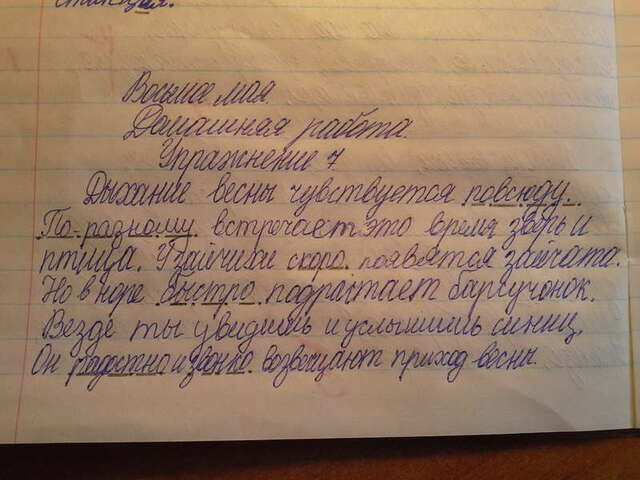 станция.
Восьмое мая.
Домашная работа.
Упражнение 7
Дыхание весны чувствуется повсюду.
По-разному встречает это время зверь и
птица. У зайчихи скоро появятся зайчата.
Но в норе быстро подрастает барсучонок.
Везде ты увидишь и услышишь синиц.
Он радостно и звонко возвещают приход весны.